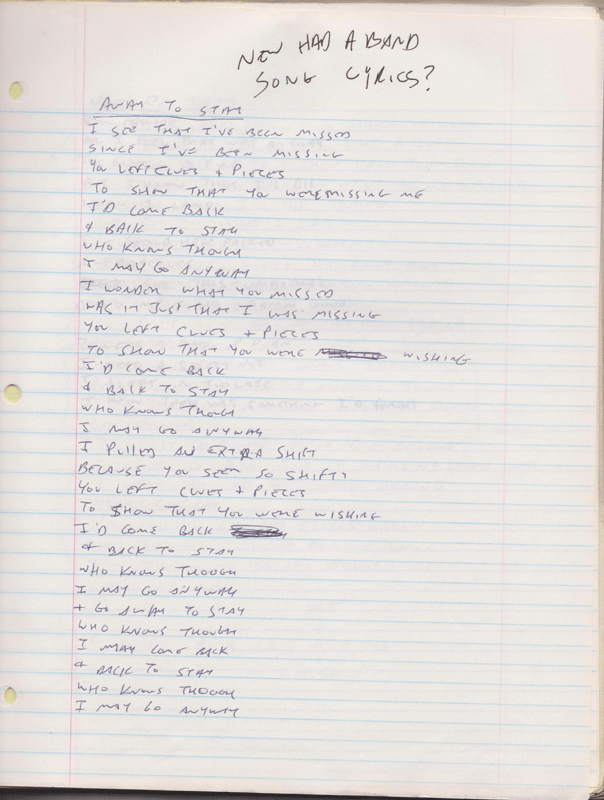 NEW HAD A BAND
SONG LYRICS?
AWAY TO STAY
I SEE THAT I'VE BEEN MISSED
SINCE I'VE BEEN MISSING
YOU LEFT CLUES + PIECES
TO SHOW THAT YOU WERE MISSING ME
I'D COME BACK
& BACK TO STAY
WHO KNOWS THOUGH
I MAY GO ANYWAY
I WONDER WHAT YOU MISSED
WAS IT JUST THAT I WAS MISSING
YOU LEFT CLUES + PIECES
TO SHOW THAT YOU WERE WISHING
I'D COME BACK
& BACK TO STAY
WHO KNOWS THOUGH
I MAY GO ANYWAY
I PULLED AN EXTRA SHIFT
BECAUSE YOU SEEM SO SHIFTY
YOU LEFT CLUES + PIECES
TO SHOW THAT YOU WERE WISHING
I'D COME BACK
& BACK TO STAY
WHO KNOWS THOUGH
I MAY GO ANYWAY
+ GO AWAY TO STAY
WHO KNOWS THOUGH
I MAY COME BACK
& BACK TO STAY
WHO KNOWS THOUGH
I MAY GO ANYWY